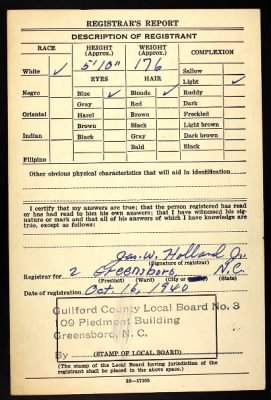 REGISTRAR'S REPORT
DESCRIPTION OF REGISTRANT
RACE HEIGHT (Approx.) WEIGHT (Approx.) COMPLEXION
White ✓ 5'10" 176 Sallow
EYES HAIR Light ✓
Negro Blue ✓ Blonde ✓ Ruddy
Gray Red Dark
Oriental Hazel Brown Freckled
Brown Black Light brown
Indian Black Gray Dark brown
Bald Black
Filipino
Other obvious physical characteristics that will aid in identification
I certify that my answers are true; that the person registered has read
or has had read to him his own answers; that I have witnessed his
signature or mark and that all of his answers of which I have knowledge are
true, except as follows:
Jas. W. Holland Jr.
(Signature of registrar)
Registrar for 2 Greensboro N.C.
(Precinct) (Ward) (City or) (State)
Date of registration Oct. 16, 1940
Guilford County Local Board No. 3
109 Piedmont Building
Greensboro, N. C.
By
(STAMP OF LOCAL BOARD)
(The stamp of the Local Board having jurisdiction of the
registrant shall be placed in the above space.)